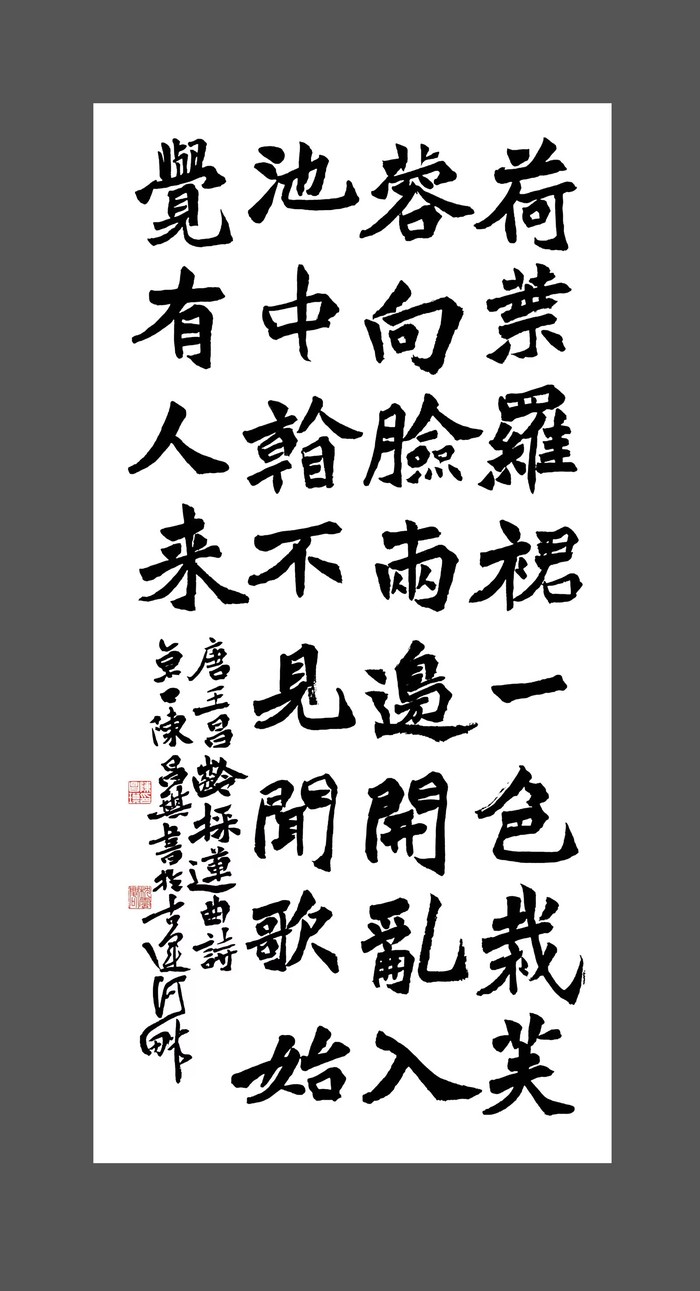 荷葉羅裙一色栽芙
蓉向臉兩邊開亂入
池中看不見聞歌始
覺有人来
唐王昌齡採蓮曲詩
京口陳昌書於古運河畔